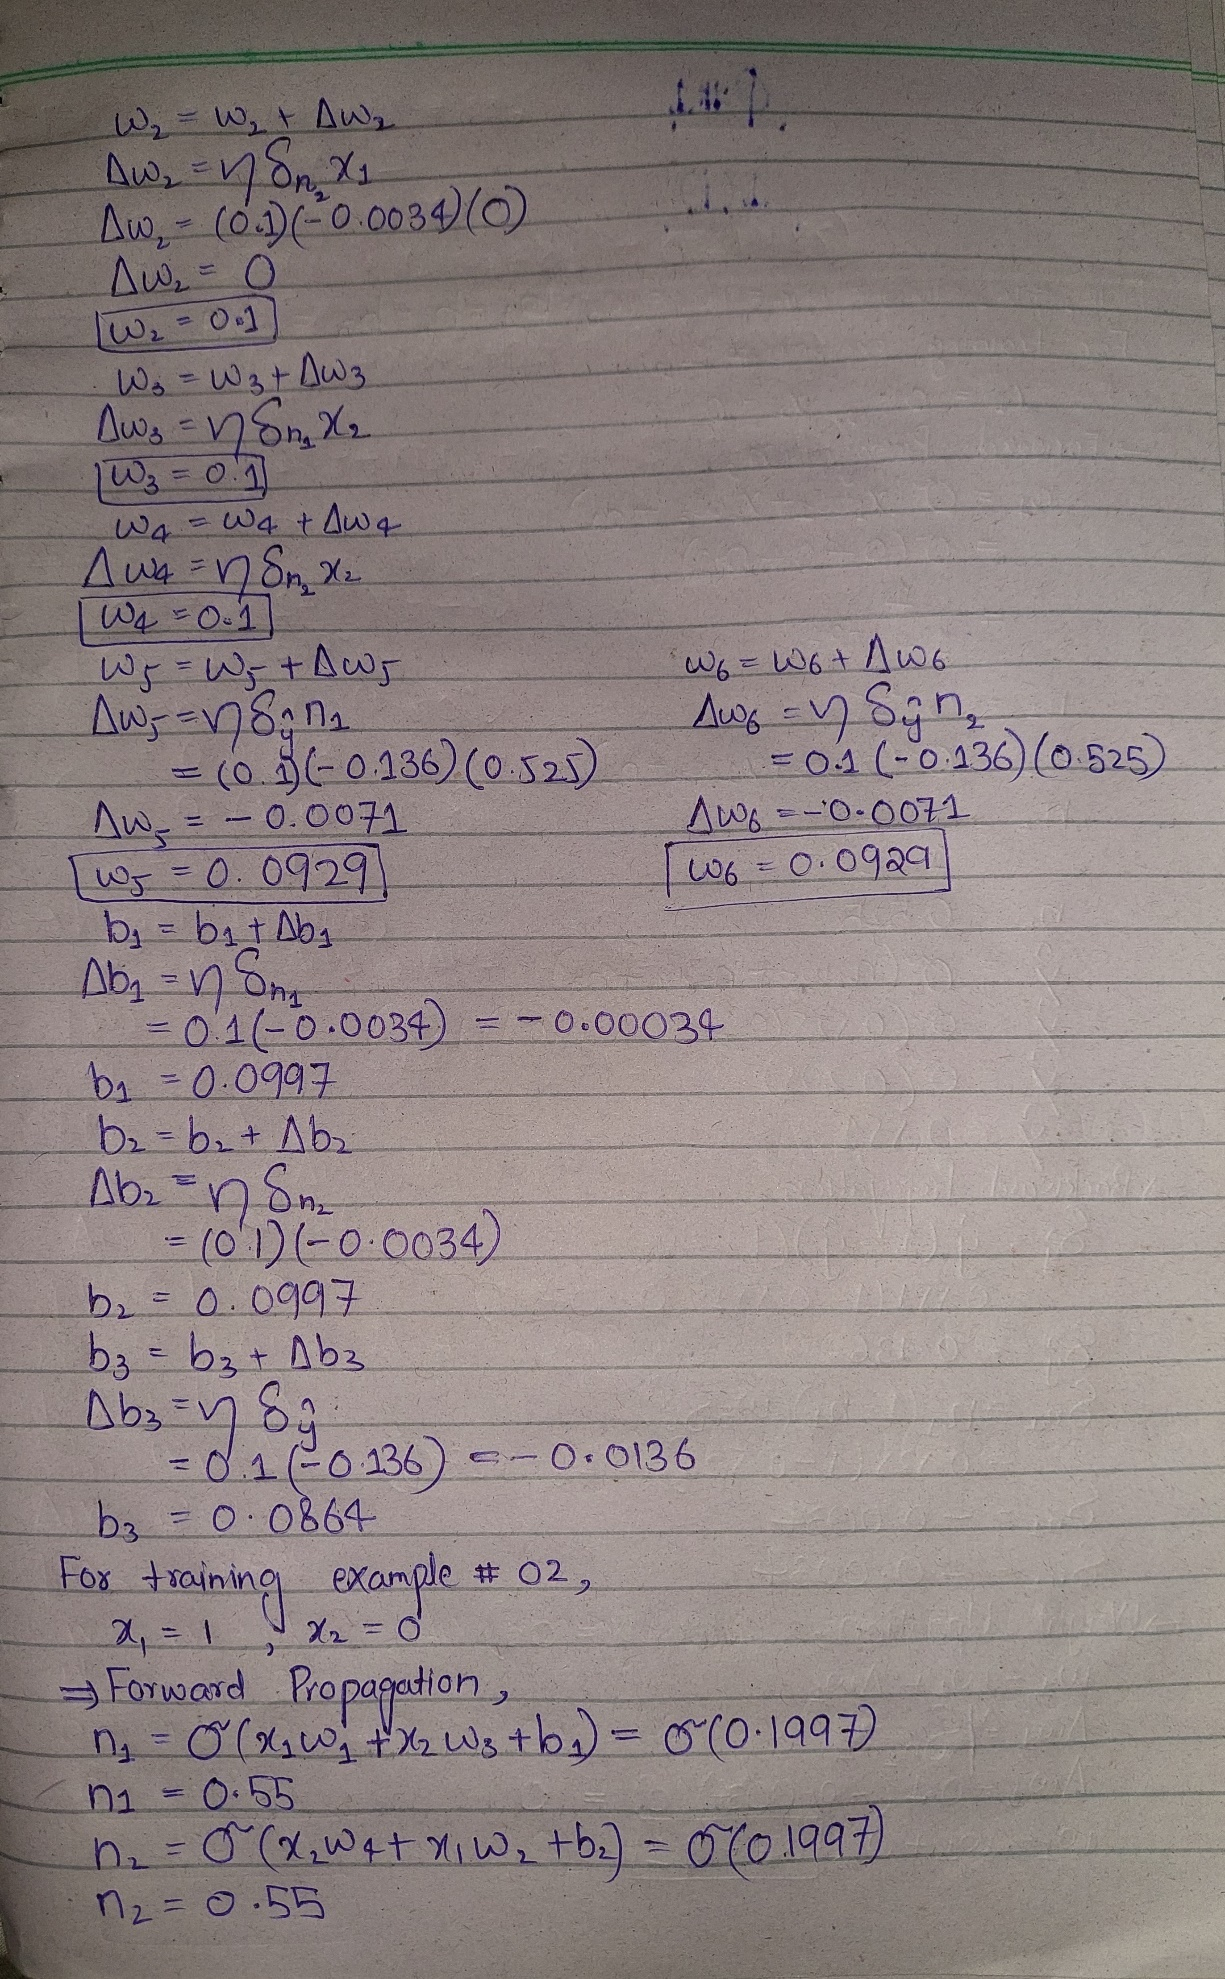 w₂ = w₂ + Δw₂
Δw₂ = η δn₂ x₁
Δw₂ = (0.1)(-0.0034)(0)
Δw₂ = 0
w₂ = 0.1
w₃ = w₃ + Δw₃
Δw₃ = η δn₁ x₂
w₃ = 0.1
w₄ = w₄ + Δw₄
Δw₄ = η δn₂ x₂
w₄ = 0.1
w₅ = w₅ + Δw₅
Δw₅ = η δŷ n₁
= (0.1)(-0.136)(0.525)
Δw₅ = -0.0071
w₅ = 0.0929
w₆ = w₆ + Δw₆
Δw₆ = η δŷ n₂
= 0.1 (-0.136)(0.525)
Δw₆ = -0.0071
w₆ = 0.0929
b₁ = b₁ + Δb₁
Δb₁ = η δn₁
= 0.1(-0.0034) = -0.00034
b₁ = 0.0997
b₂ = b₂ + Δb₂
Δb₂ = η δn₂
= (0.1)(-0.0034)
b₂ = 0.0997
b₃ = b₃ + Δb₃
Δb₃ = η δŷ
= 0.1(-0.136) = -0.0136
b₃ = 0.0864
For training example # 02,
x₁ = 1 , x₂ = 0
⇒ Forward Propagation,
n₁ = σ(x₁w₁ + x₂w₃ + b₁) = σ(0.1997)
n₁ = 0.55
n₂ = σ(x₂w₄ + x₁w₂ + b₂) = σ(0.1997)
n₂ = 0.55